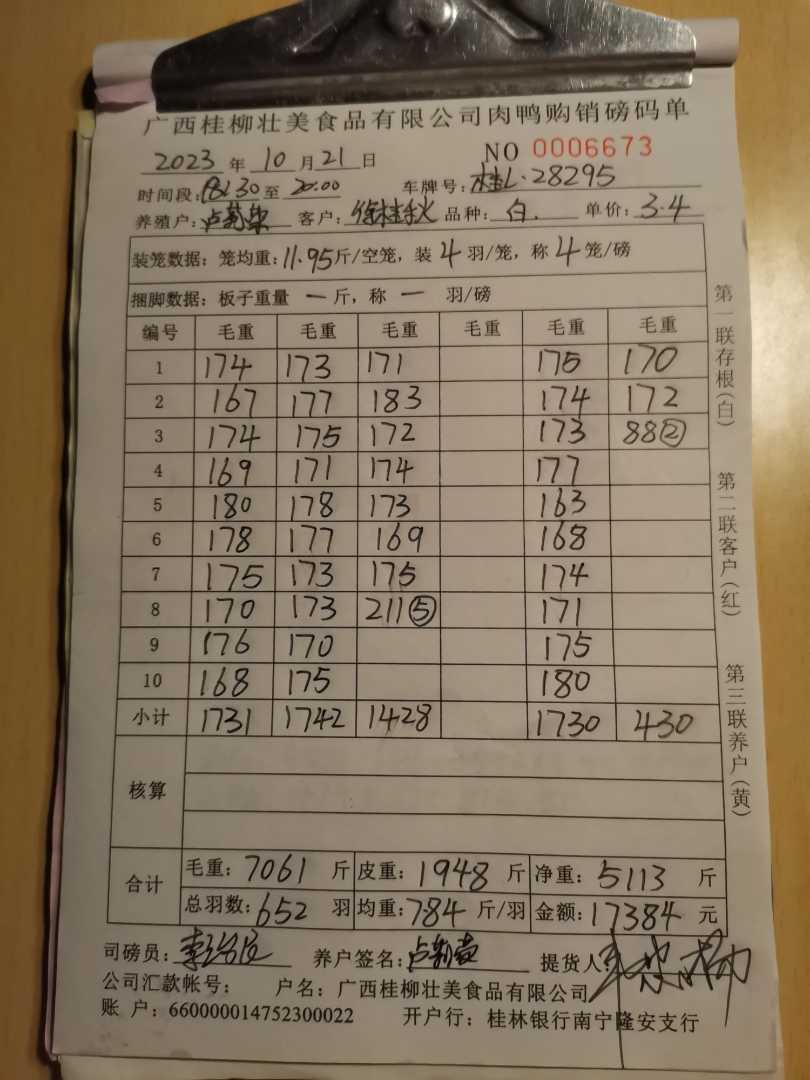 广西桂柳壮美食品有限公司肉鸭购销磅码单
2023 年 10 月 21 日 NO 0006673
时间段: 18:30 至 20:00 车牌号: 桂L·28295
养殖户: 客户: 徐桂秋 品种: 白. 单价: 3.4
装笼数据: 笼均重: 11.95 斤/空笼, 装 4 羽/笼, 称 4 笼/磅
捆脚数据: 板子重量 一 斤, 称 一 羽/磅
编号 毛重 毛重 毛重 毛重 毛重 毛重
1 174 173 171 175 170
2 167 177 183 174 172
3 174 175 172 173 88②
4 169 171 174 177
5 180 178 173 163
6 178 177 169 168
7 175 173 175 174
8 170 173 211⑤ 171
9 176 170 175
10 168 175 180
小计 1731 1742 1428 1730 430
核算
合计
毛重: 7061 斤 皮重: 1948 斤 净重: 5113 斤
总羽数: 652 羽 均重: 784 斤/羽 金额: 17384 元
司磅员: 养户签名: 提货人:
公司汇款帐号: 户名: 广西桂柳壮美食品有限公司
账 户: 660000014752300022 开户行: 桂林银行南宁隆安支行
第一联存根(白)
第二联客户(红)
第三联养户(黄)